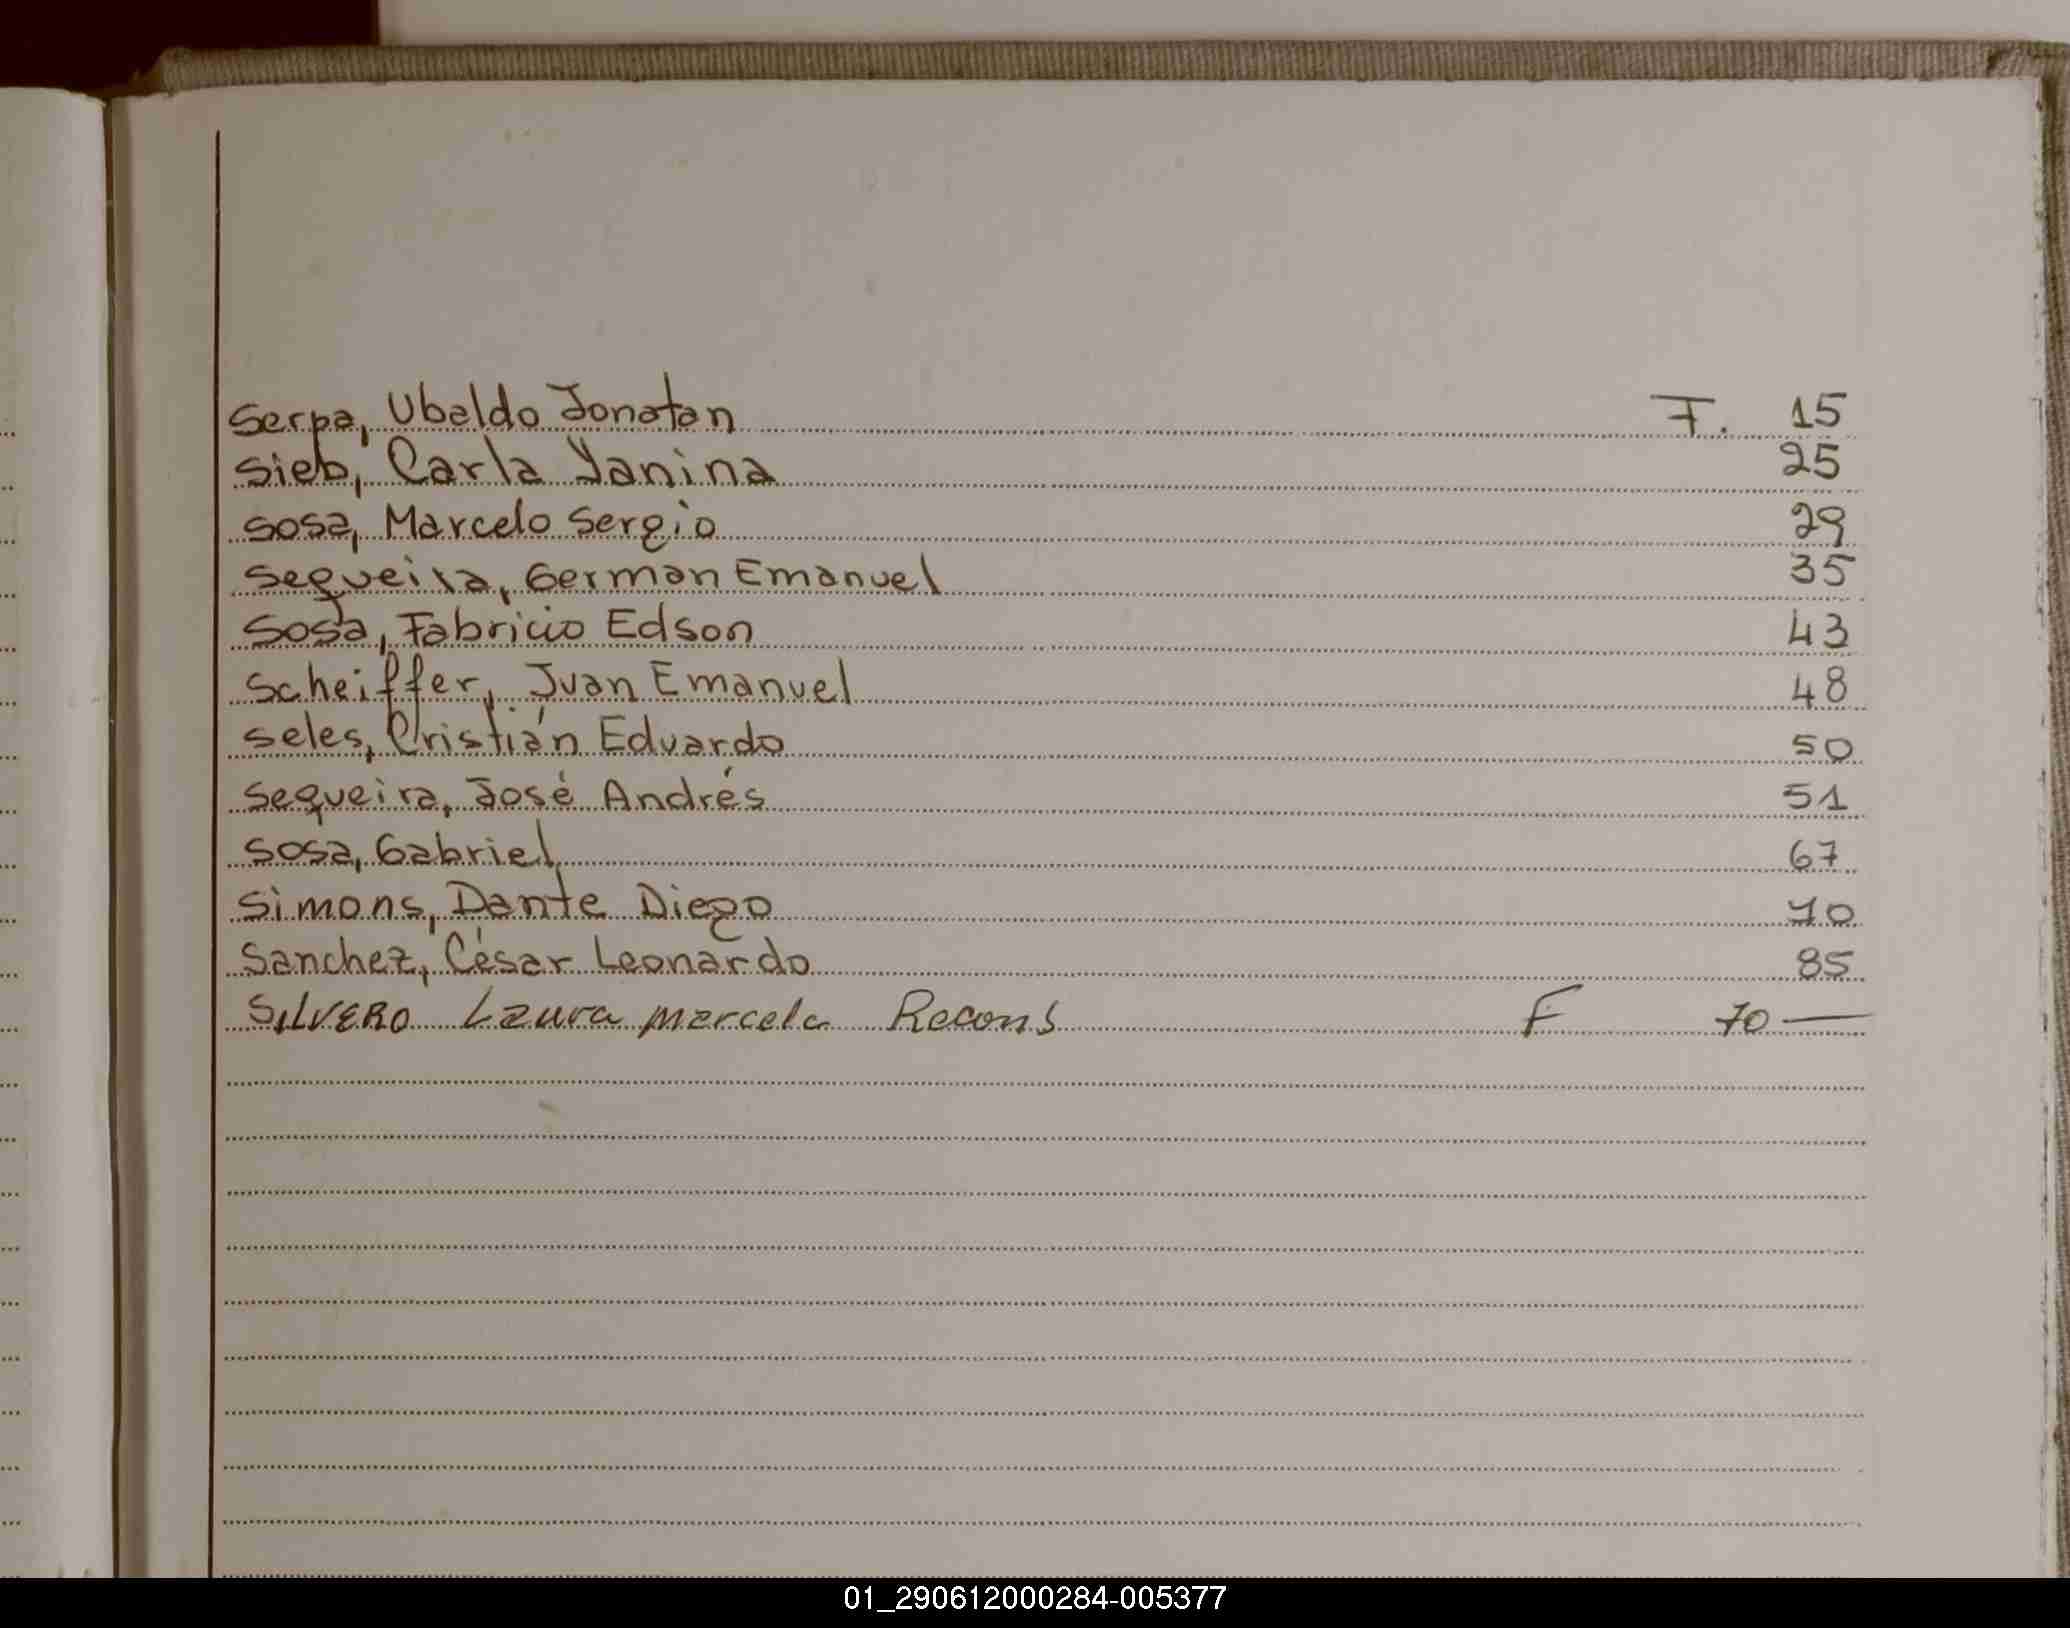 Serpa, Ubaldo Jonatan F. 15
Sieb, Carla Yanina 25
Sosa, Marcelo Sergio 29
Sequeira, German Emanuel 35
Sosa, Fabricio Edson 43
Scheiffer, Juan Emanuel 48
Seles, Cristián Eduardo 50
Sequeira, José Andrés 51
Sosa, Gabriel 67
Simons, Dante Diego 70
Sanchez, César Leonardo 85
SILVERO Laura Marcela Recons F 70 —
01_290612000284-005377